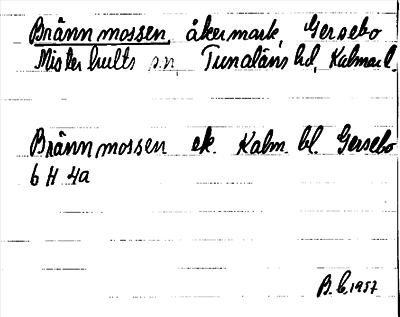 Brännmossen, åkermark, Gersebo
Misterhults sn, Tunaläns hd, Kalmar l.
Brännmossen ek. Kalm bl. Gersebo
6 H 4a
B. C. 1957